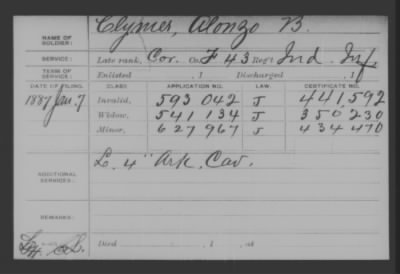 NAME OF SOLDIER: Clymer, Alonzo B.
SERVICE: Late rank, Cor. Co. F 43 Reg't Ind. Inf.
TERM OF SERVICE: Enlisted , 1 Discharged , 1
DATE OF FILING. CLASS. APPLICATION NO. LAW. CERTIFICATE NO.
1887 Jan. 7 Invalid, 593 042 J 441,592
Widow, 541 134 J 350 230
Minor, 627 967 J 434 470
ADDITIONAL SERVICES: L. 4" Ark. Cav.
REMARKS:
Died , 1 , at